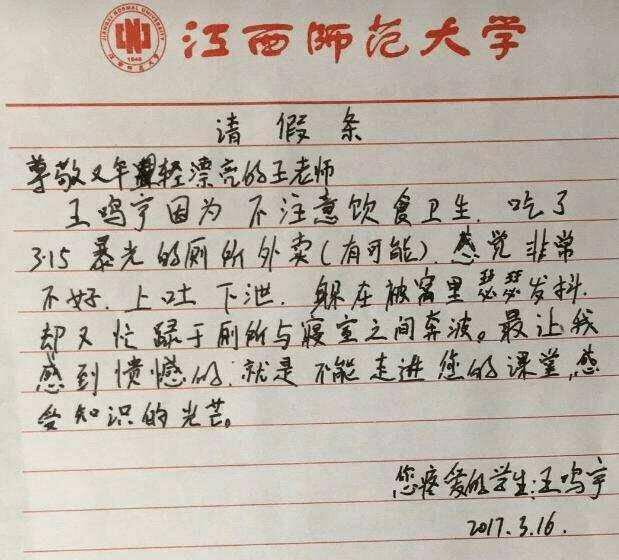 JIANGXI NORMAL UNIVERSITY
1940
江西师范大学
请假条
尊敬又年轻漂亮的王老师
王鸣亨因为不注意饮食卫生.吃了
3.15暴光的厕所外卖(有可能).感觉非常
不好.上吐下泄.躲在被窝里瑟瑟发抖.
却又忙碌于厕所与寝室之间奔波。最让我
感到愤憾的.就是不能走进您的课堂,感
受知识的光芒。
您疼爱的学生:王鸣亨
2017.3.16.